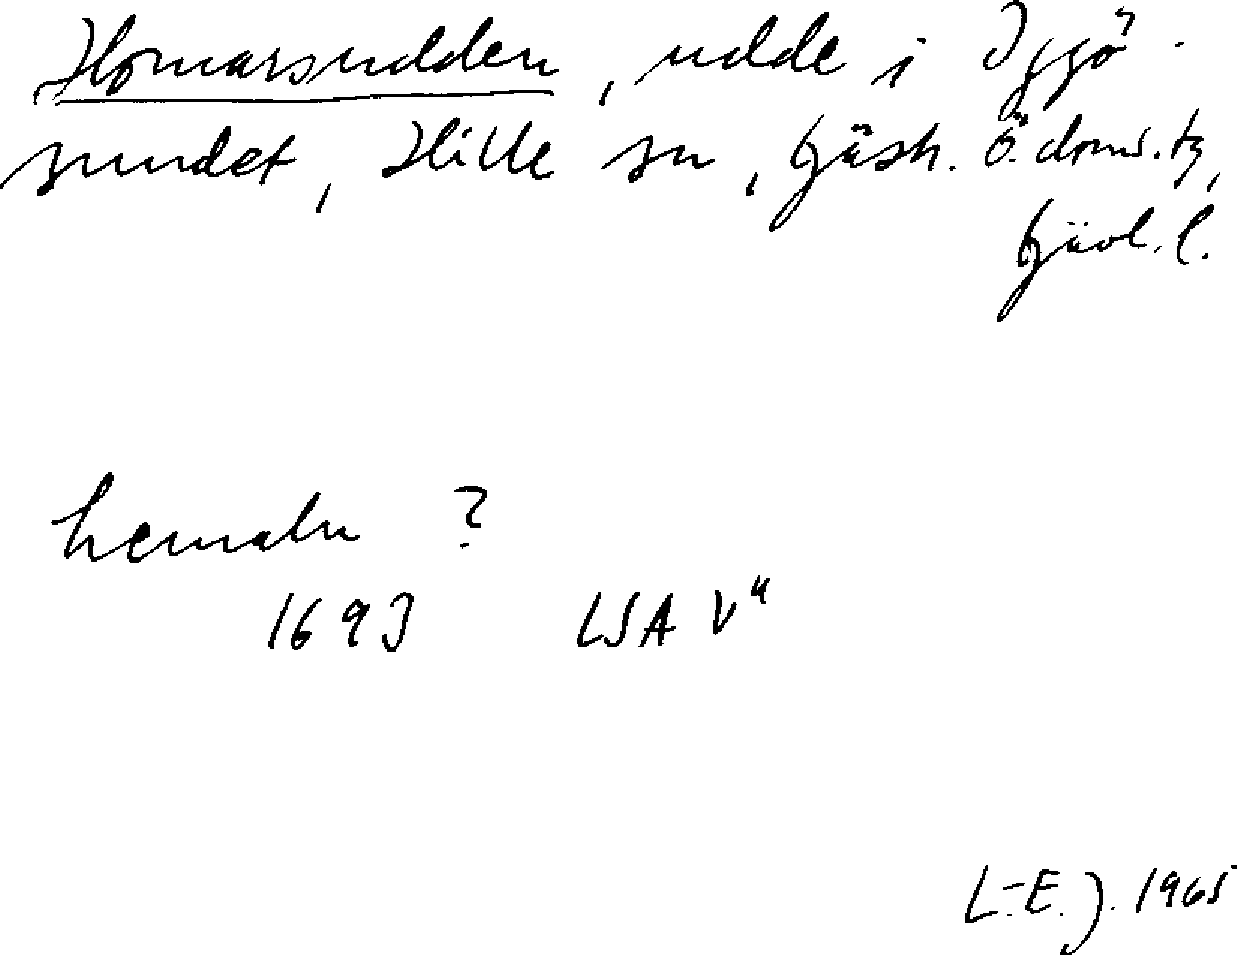 Homarsudden, udde i Iggö-
sundet, Hille sn, Gästr. Ö. doms. tg,
Gävl. l.
hemaln ?
1693 LSA V4
L.-E. J. 1965